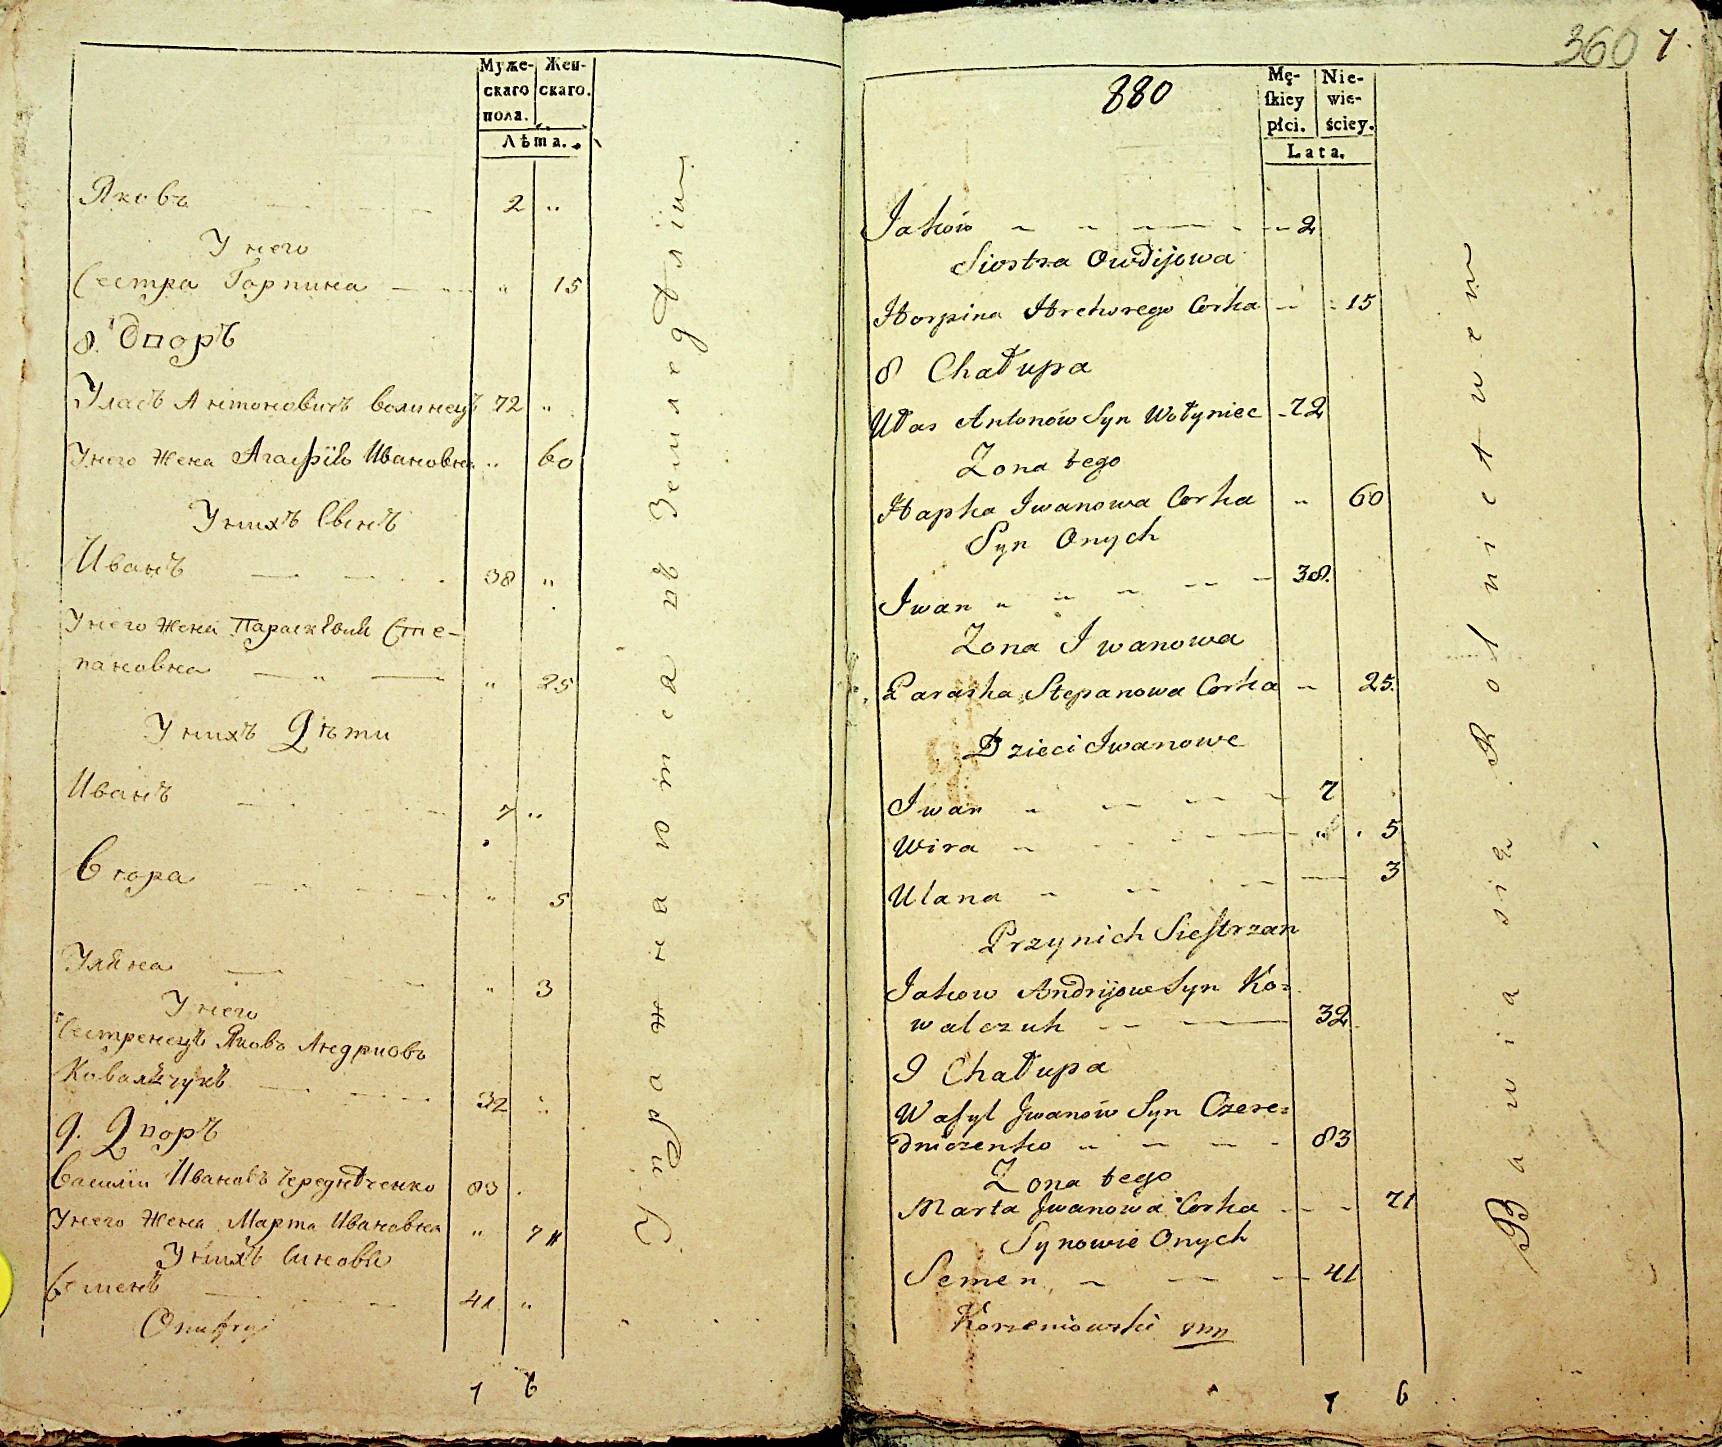 Муже-
скаго
пола.
Жен-
скаго.
Лѣта.
Яковъ 2 "
У него
Сестра Горпина " 15
8. Дворъ
Уласъ Антоновичъ Волинецъ 72 "
Унего жена Агафія Ивановна " 60
Унихъ Синъ
Иванъ 38 "
Унего жена Параскѣвия Сте-
пановна " 25
Унихъ Дѣти
Иванъ 7 "
Вѣра " 5
Уляна " 3
У него
Сестренецъ Яковъ Андриовъ
Ковальчукъ 32 "
9. Дворъ
Василій Ивановъ Чередниченко 83
Унего жена Марта Ивановна " 71
Унихъ Синовѣ
Семенъ 41 "
Onufry
7 6
Упражнаются въ Земледѣліи
360 7.
880
Mę-
skiey
płci.
Nie-
wie-
ściey.
Lata.
Jaków 2
Siostra Owdijowa
Horpina Hrehorego Corka 15
8 Chałupa
Ułas Antonów Syn Wołyniec 72
Zona tego
Hapka Iwanowa Corka " 60
Syn Onych
Iwan " 38.
Zona Iwanowa
Paraska Stepanowa Corka 25.
Dzieci Iwanowe
Iwan 7
Wira " 5
Ulana 3
Przynich Siestrzan
Jakow Andrijow Syn Ko=
walczuk 32
9 Chałupa
Wasyl Iwanów Syn Czere=
dniczenko " 83
Zona tego
Marta Iwanowa Corka 71
Synowie Onych
Semen 41
Korzeniowski mp
7 6
Bawia się Rolnictwem